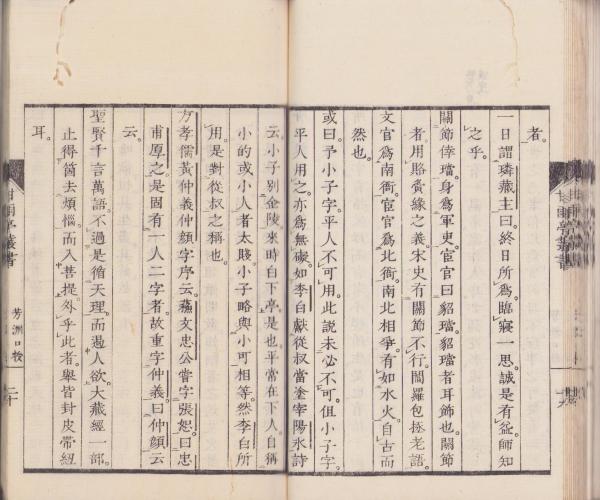 者。
一日謂璘藏主曰。終日所爲臨寢一思。誠是有益。師知
之乎。
關節倖璫。身爲軍吏。宦官曰貂璫。貂璫者耳飾也。關節
者。用賂賓緣之義。宋史有關節不行。閻羅包拯老語。
文官爲南衙。宦官爲北衙。南北相爭。有如水火。自古而
然也。
或曰。予小子字。平人不可用。此説未必不可。但小子字。
平人用之。亦爲無礙。如李白獻從叔當塗宰陽冰詩
云。小子別金陵。來時白下亭。是也。平常在下人自稱
小的或小人者太賤。小子略與小可相等。然李白所
用。是對從叔之稱也。
方孝儒黃仲義仲顔字序云。蘇文忠公嘗字張恕。曰忠
甫厚之。是固有一人二字者。故重字仲義曰仲顔云
云。
聖賢千言萬語。不過是循天理。而遏人欲。大藏經一部。
止得箇去煩惱。而入菩提。外乎此者。擧皆封皮帶紐
耳。
甘雨亭叢書
芳洲口授
二十
甘雨亭叢書